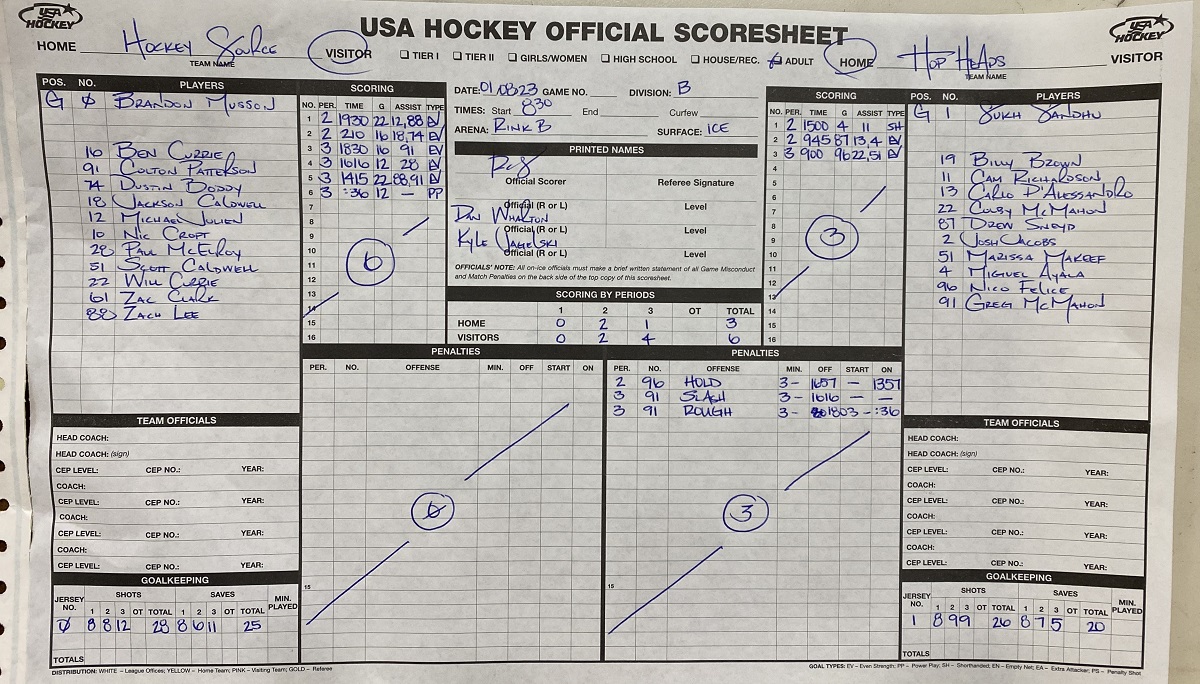 USA HOCKEY
USA HOCKEY OFFICIAL SCORESHEET
USA HOCKEY
HOME Hockey Source VISITOR
TEAM NAME
TIER I TIER II GIRLS/WOMEN HIGH SCHOOL HOUSE/REC. ADULT
HOME Hop Heads VISITOR
TEAM NAME
POS. NO. PLAYERS
G 0 Brandon Musson
16 Ben Currie
91 Colton Patterson
74 Dustin Boddy
18 Jackson Caldwell
12 Michael Julien
10 Nic Croft
28 Paul McElroy
51 Scott Caldwell
22 Will Currie
61 Zac Clark
88 Zach Lee
SCORING
NO. PER. TIME G ASSIST TYPE
1 2 1930 22 12,88 EV
2 2 210 16 18,74 EV
3 3 1830 16 91 EV
4 3 1616 12 28 EV
5 3 1415 22 88,91 EV
6 3 :36 12 — PP
7
8
9
10
11
12
13
14
15
16
6
DATE: 010823 GAME NO. DIVISION: B
TIMES: Start 830 End Curfew
ARENA: Rink B SURFACE: ICE
PRINTED NAMES
Official Scorer Referee Signature
Official (R or L) Level
Dan Wharton
Official (R or L) Level
Kyle
Official (R or L) Level
OFFICIALS' NOTE: All on-ice officials must make a brief written statement of all Game Misconduct
and Match Penalties on the back side of the top copy of this scoresheet.
SCORING BY PERIODS
1 2 3 OT TOTAL
HOME 0 2 1 3
VISITORS 0 2 4 6
SCORING
NO. PER. TIME G ASSIST TYPE
1 2 1500 4 11 SH
2 2 945 87 13,4 EV
3 3 900 96 22,51 EV
4
5
6
7
8
9
10
11
12
13
14
15
16
3
POS. NO. PLAYERS
G 1 Sukh Sandhu
19 Billy Brown
11 Cam Richardson
13 Carlo D'Alessandro
22 Colby McMahon
87 Drew Sneyd
2 Josh Jacobs
51 Marissa Makeef
4 Miguel Ayala
96 Nico Felice
91 Greg McMahon
PENALTIES
PER. NO. OFFENSE MIN. OFF START ON
0
15
PENALTIES
PER. NO. OFFENSE MIN. OFF START ON
2 96 HOLD 3 – 1657 — 1357
3 91 SLASH 3 – 1616 — —
3 91 ROUGH 3 – 1803 – :36
3
15
TEAM OFFICIALS
HEAD COACH:
HEAD COACH: (sign)
CEP LEVEL: CEP NO.: YEAR:
COACH:
CEP LEVEL: CEP NO.: YEAR:
COACH:
CEP LEVEL: CEP NO.: YEAR:
COACH:
CEP LEVEL: CEP NO.: YEAR:
GOALKEEPING
JERSEY NO. SHOTS SAVES MIN. PLAYED
1 2 3 OT TOTAL 1 2 3 OT TOTAL
0 8 8 12 28 8 6 11 25
TOTALS
TEAM OFFICIALS
HEAD COACH:
HEAD COACH: (sign)
CEP LEVEL: CEP NO.: YEAR:
COACH:
CEP LEVEL: CEP NO.: YEAR:
COACH:
CEP LEVEL: CEP NO.: YEAR:
COACH:
CEP LEVEL: CEP NO.: YEAR:
GOALKEEPING
JERSEY NO. SHOTS SAVES MIN. PLAYED
1 2 3 OT TOTAL 1 2 3 OT TOTAL
1 8 9 9 26 8 7 5 20
TOTALS
DISTRIBUTION: WHITE – League Offices; YELLOW – Home Team; PINK – Visiting Team; GOLD – Referee
GOAL TYPES: EV – Even Strength; PP – Power Play; SH – Shorthanded; EN – Empty Net; EA – Extra Attacker; PS – Penalty Shot